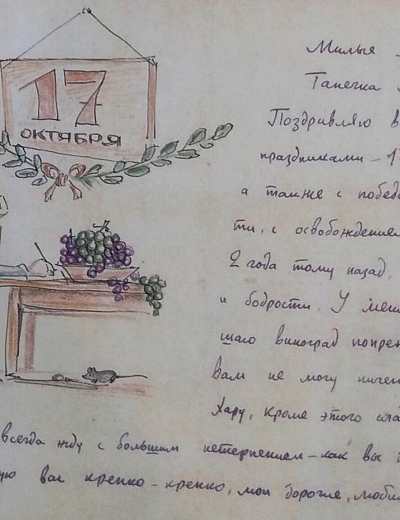 17
ОКТЯБРЯ
Милые
Танечка
Поздравляю в
праздниками – 1
а также с победо
ти, с освобождением
2 года тому назад,
и бодрости. У меня
шаго виноград попре
вам не могу ничем
Хару, кроме этого сла
всегда жду с большим нетерпением – как вы
ую вас крепко-крепко, мои дорогие, люби